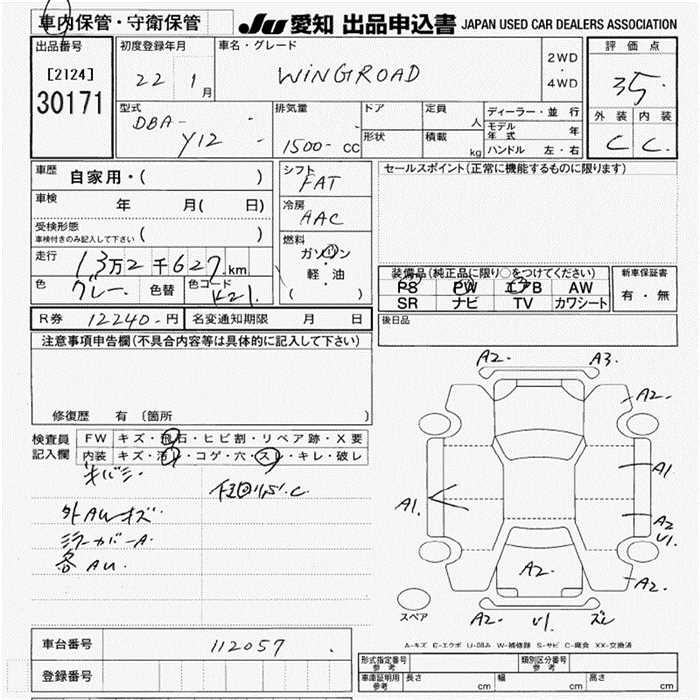 車内保管・守衛保管
JU 愛知 出品申込書 JAPAN USED CAR DEALERS ASSOCIATION
出品番号
[2124]
30171
初度登録年月
22 1月
車名・グレード
WINGROAD
2WD
・
4WD
評価点
3.5
外装 内装
C C
型式
DBA-
Y12
排気量
1500- cc
ドア
形状
定員
人
積載
kg
ディーラー・並行
モデル年式 年
ハンドル 左・右
車歴 自家用・( )
車検 年 月( 日)
受検形態
車検付きのみ記入して下さい ( )
走行 13万2千627km
色 グレー 色替 色コード K21
シフト
FAT
冷房
AAC
燃料
ガソリン
軽・油
( )
セールスポイント(正常に機能するものに限ります)
装備品(純正品に限り○をつけてください)
PS PW エアB AW
SR ナビ TV カワシート
新車保証書
有・無
R券 12240-円 名変通知期限 月 日
後日品
注意事項申告欄(不具合内容等は具体的に記入して下さい)
修復歴 有 〔箇所 〕
検査員
記入欄
FW キズ・飛石・ヒビ割・リペア跡・X要
内装 キズ・汚レ・コゲ・穴・スレ・キレ・破レ
外AUキズ
ミラーカバーA.
各AU.
A2. A3.
A2.
A1
A1.
A2
U1.
A2.
A2.
A2. U1. ズレ
スペア
A-キズ E-エクボ U-凹み W-補修跡 S-サビ C-腐食 XX-交換済
車台番号 112057
登録番号
形式指定番号
参考
類別区分番号
参考
車庫証明用
参考
長さ cm 幅 cm 高さ cm